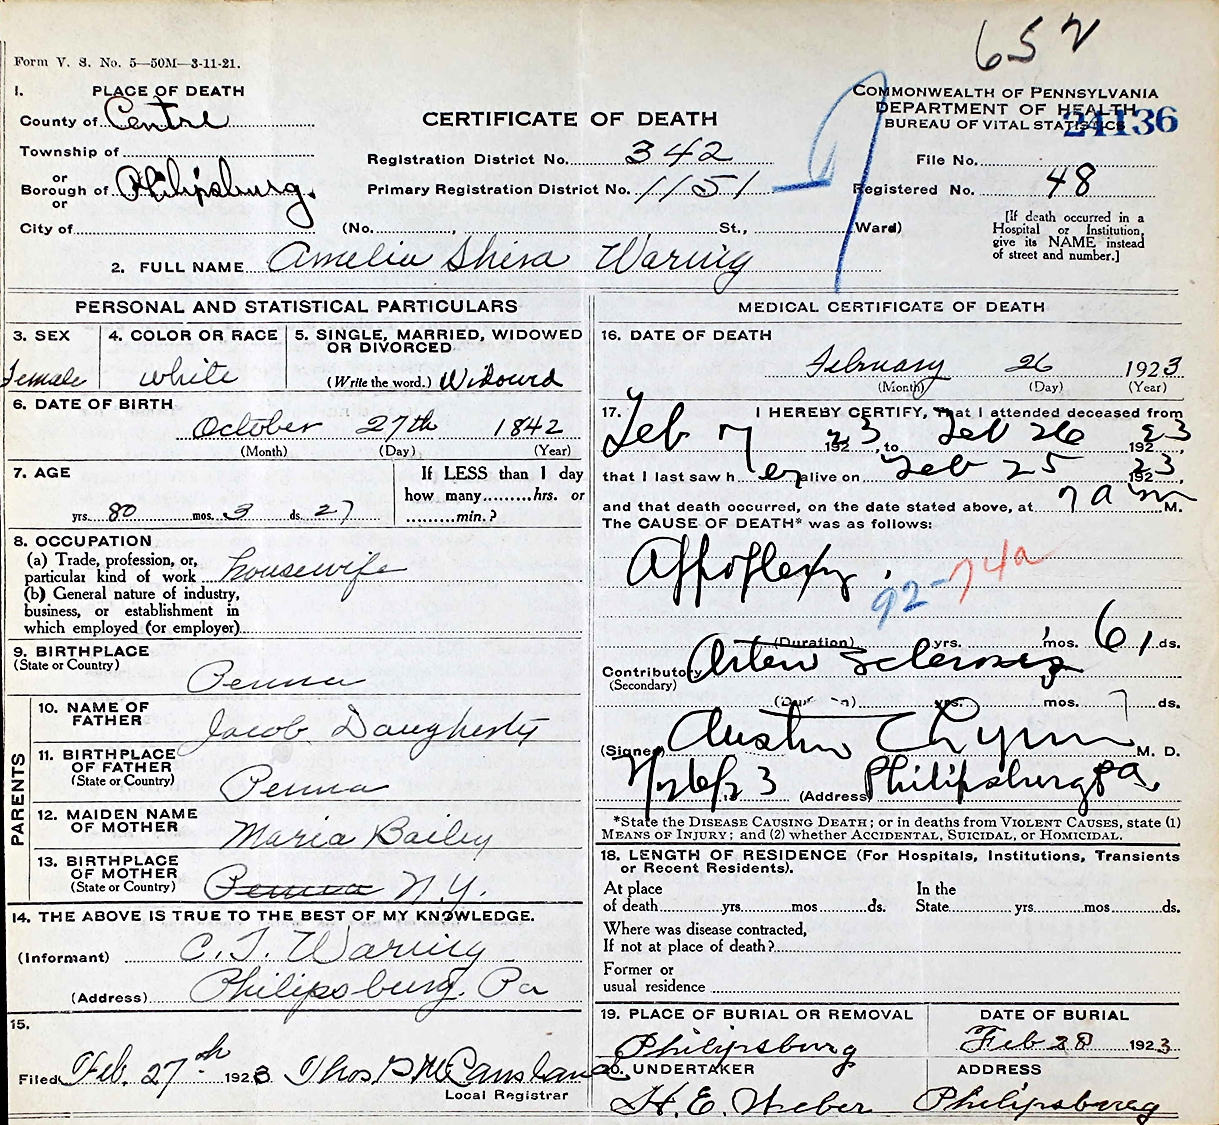 652
Form V. S. No. 5—50M—3-11-21.
1. PLACE OF DEATH
County of Centre
Township of
or
Borough of Philipsburg.
or
City of
CERTIFICATE OF DEATH
Registration District No. 342
Primary Registration District No. 1151
(No. , St., Ward)
COMMONWEALTH OF PENNSYLVANIA
DEPARTMENT OF HEALTH
BUREAU OF VITAL STATISTICS
24136
File No.
Registered No. 48
[If death occurred in a
Hospital or Institution,
give its NAME instead
of street and number.]
2. FULL NAME Amelia Shira Waring
PERSONAL AND STATISTICAL PARTICULARS
3. SEX
Female
4. COLOR OR RACE
White
5. SINGLE, MARRIED, WIDOWED
OR DIVORCED
(Write the word.) Widowed
6. DATE OF BIRTH
October 27th 1842
(Month) (Day) (Year)
7. AGE
yrs. 80 mos. 3 ds. 27
If LESS than 1 day
how many hrs. or
min.?
8. OCCUPATION
(a) Trade, profession, or,
particular kind of work housewife
(b) General nature of industry,
business, or establishment in
which employed (or employer)
9. BIRTHPLACE
(State or Country)
Penna
PARENTS
10. NAME OF
FATHER
Jacob Daugherty
11. BIRTHPLACE
OF FATHER
(State or Country)
Penna
12. MAIDEN NAME
OF MOTHER
Maria Bailey
13. BIRTHPLACE
OF MOTHER
(State or Country)
Penna N.Y.
14. THE ABOVE IS TRUE TO THE BEST OF MY KNOWLEDGE.
(Informant) C. T. Waring
(Address) Philipsburg, Pa
15.
Filed Feb. 27th 1923 Thos P McCausland
Local Registrar
MEDICAL CERTIFICATE OF DEATH
16. DATE OF DEATH
February 26 1923
(Month) (Day) (Year)
17. I HEREBY CERTIFY, That I attended deceased from
Feb 7 1923, to Feb 26 1923,
that I last saw her alive on Feb 25 1923,
and that death occurred, on the date stated above, at 7 am M.
The CAUSE OF DEATH* was as follows:
Appoplexy.
92-74a
(Duration) yrs. mos. ds.
Contributory Arterio Sclerosis
(Secondary)
(Duration) yrs. mos. ds.
(Signed) Austin Lynn M. D.
(Address) Philipsburg Pa.
*State the DISEASE CAUSING DEATH; or in deaths from VIOLENT CAUSES, state (1)
MEANS OF INJURY; and (2) whether ACCIDENTAL, SUICIDAL, or HOMICIDAL.
18. LENGTH OF RESIDENCE (For Hospitals, Institutions, Transients
or Recent Residents).
At place
of death yrs. mos ds.
In the
State yrs. mos ds.
Where was disease contracted,
If not at place of death?
Former or
usual residence
19. PLACE OF BURIAL OR REMOVAL
Philipsburg
DATE OF BURIAL
Feb 28 1923
20. UNDERTAKER
H. E. Weber
ADDRESS
Philipsburg